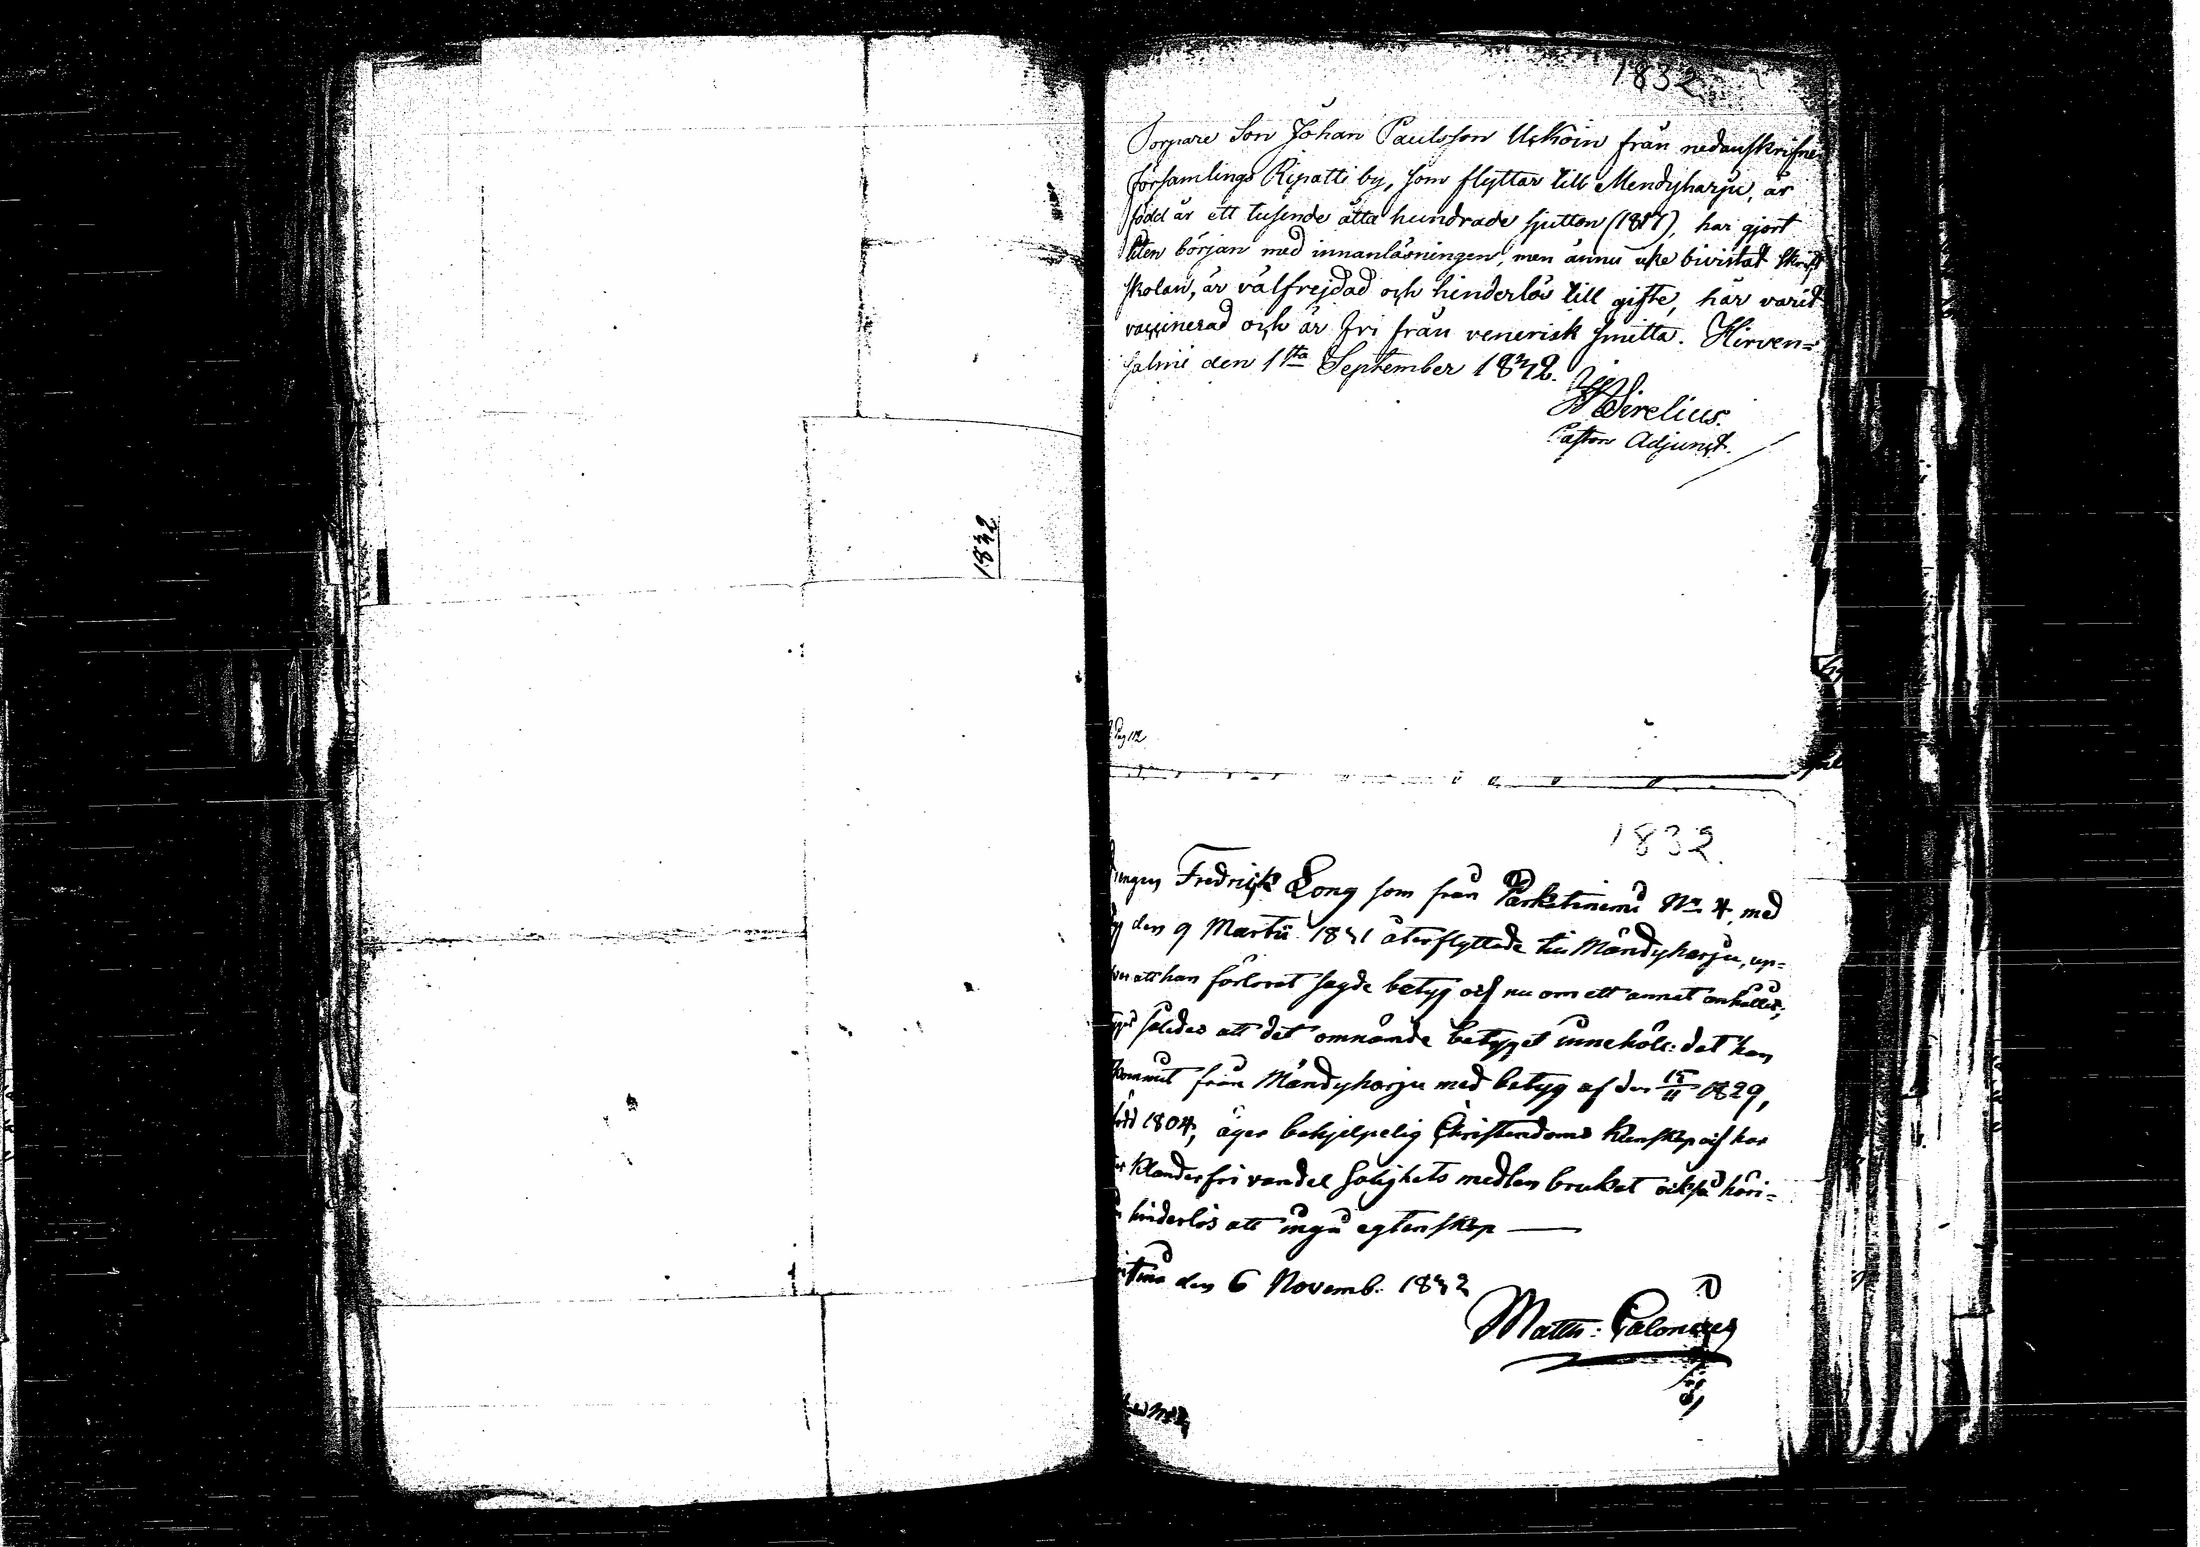 1832
1832
Torpare Son Johan Paulsson Uckoin från nedanskrifne
församlings Ripatti by, som flyttar till Mendyharju, är
född år ett tusende åtta hundrade sjutton (1817), har gjort
liten början med innanläsningen, men ännu icke bivistat skrift
skolan, är välfrejdad och hinderlös till gifte, har varit
vaccinerad och är fri från venerisk smitta. Hirven=
salmi den 1sta September 1832.
Sirelius.
Pastors Adjunct.
Pag 112
1832.
Fredrick Long som från Parkatniemi No 4, med
den 9 Martii 1831 återflyttade till Mändyharju, up=
att han förlorat sagde betyg och nu om ett annat anhåller,
således att det omnämde betyget innehöll: det han
kommit från Mändyharju med betyg af den 15/11 1829,
född 1804, äger behjelpelig Christendoms kunskap och har
klanderfri vandel salighets medlen brukat också häri=
hinderlös att ingå egtenskap —
den 6 Novemb. 1832
Matth: Calonius